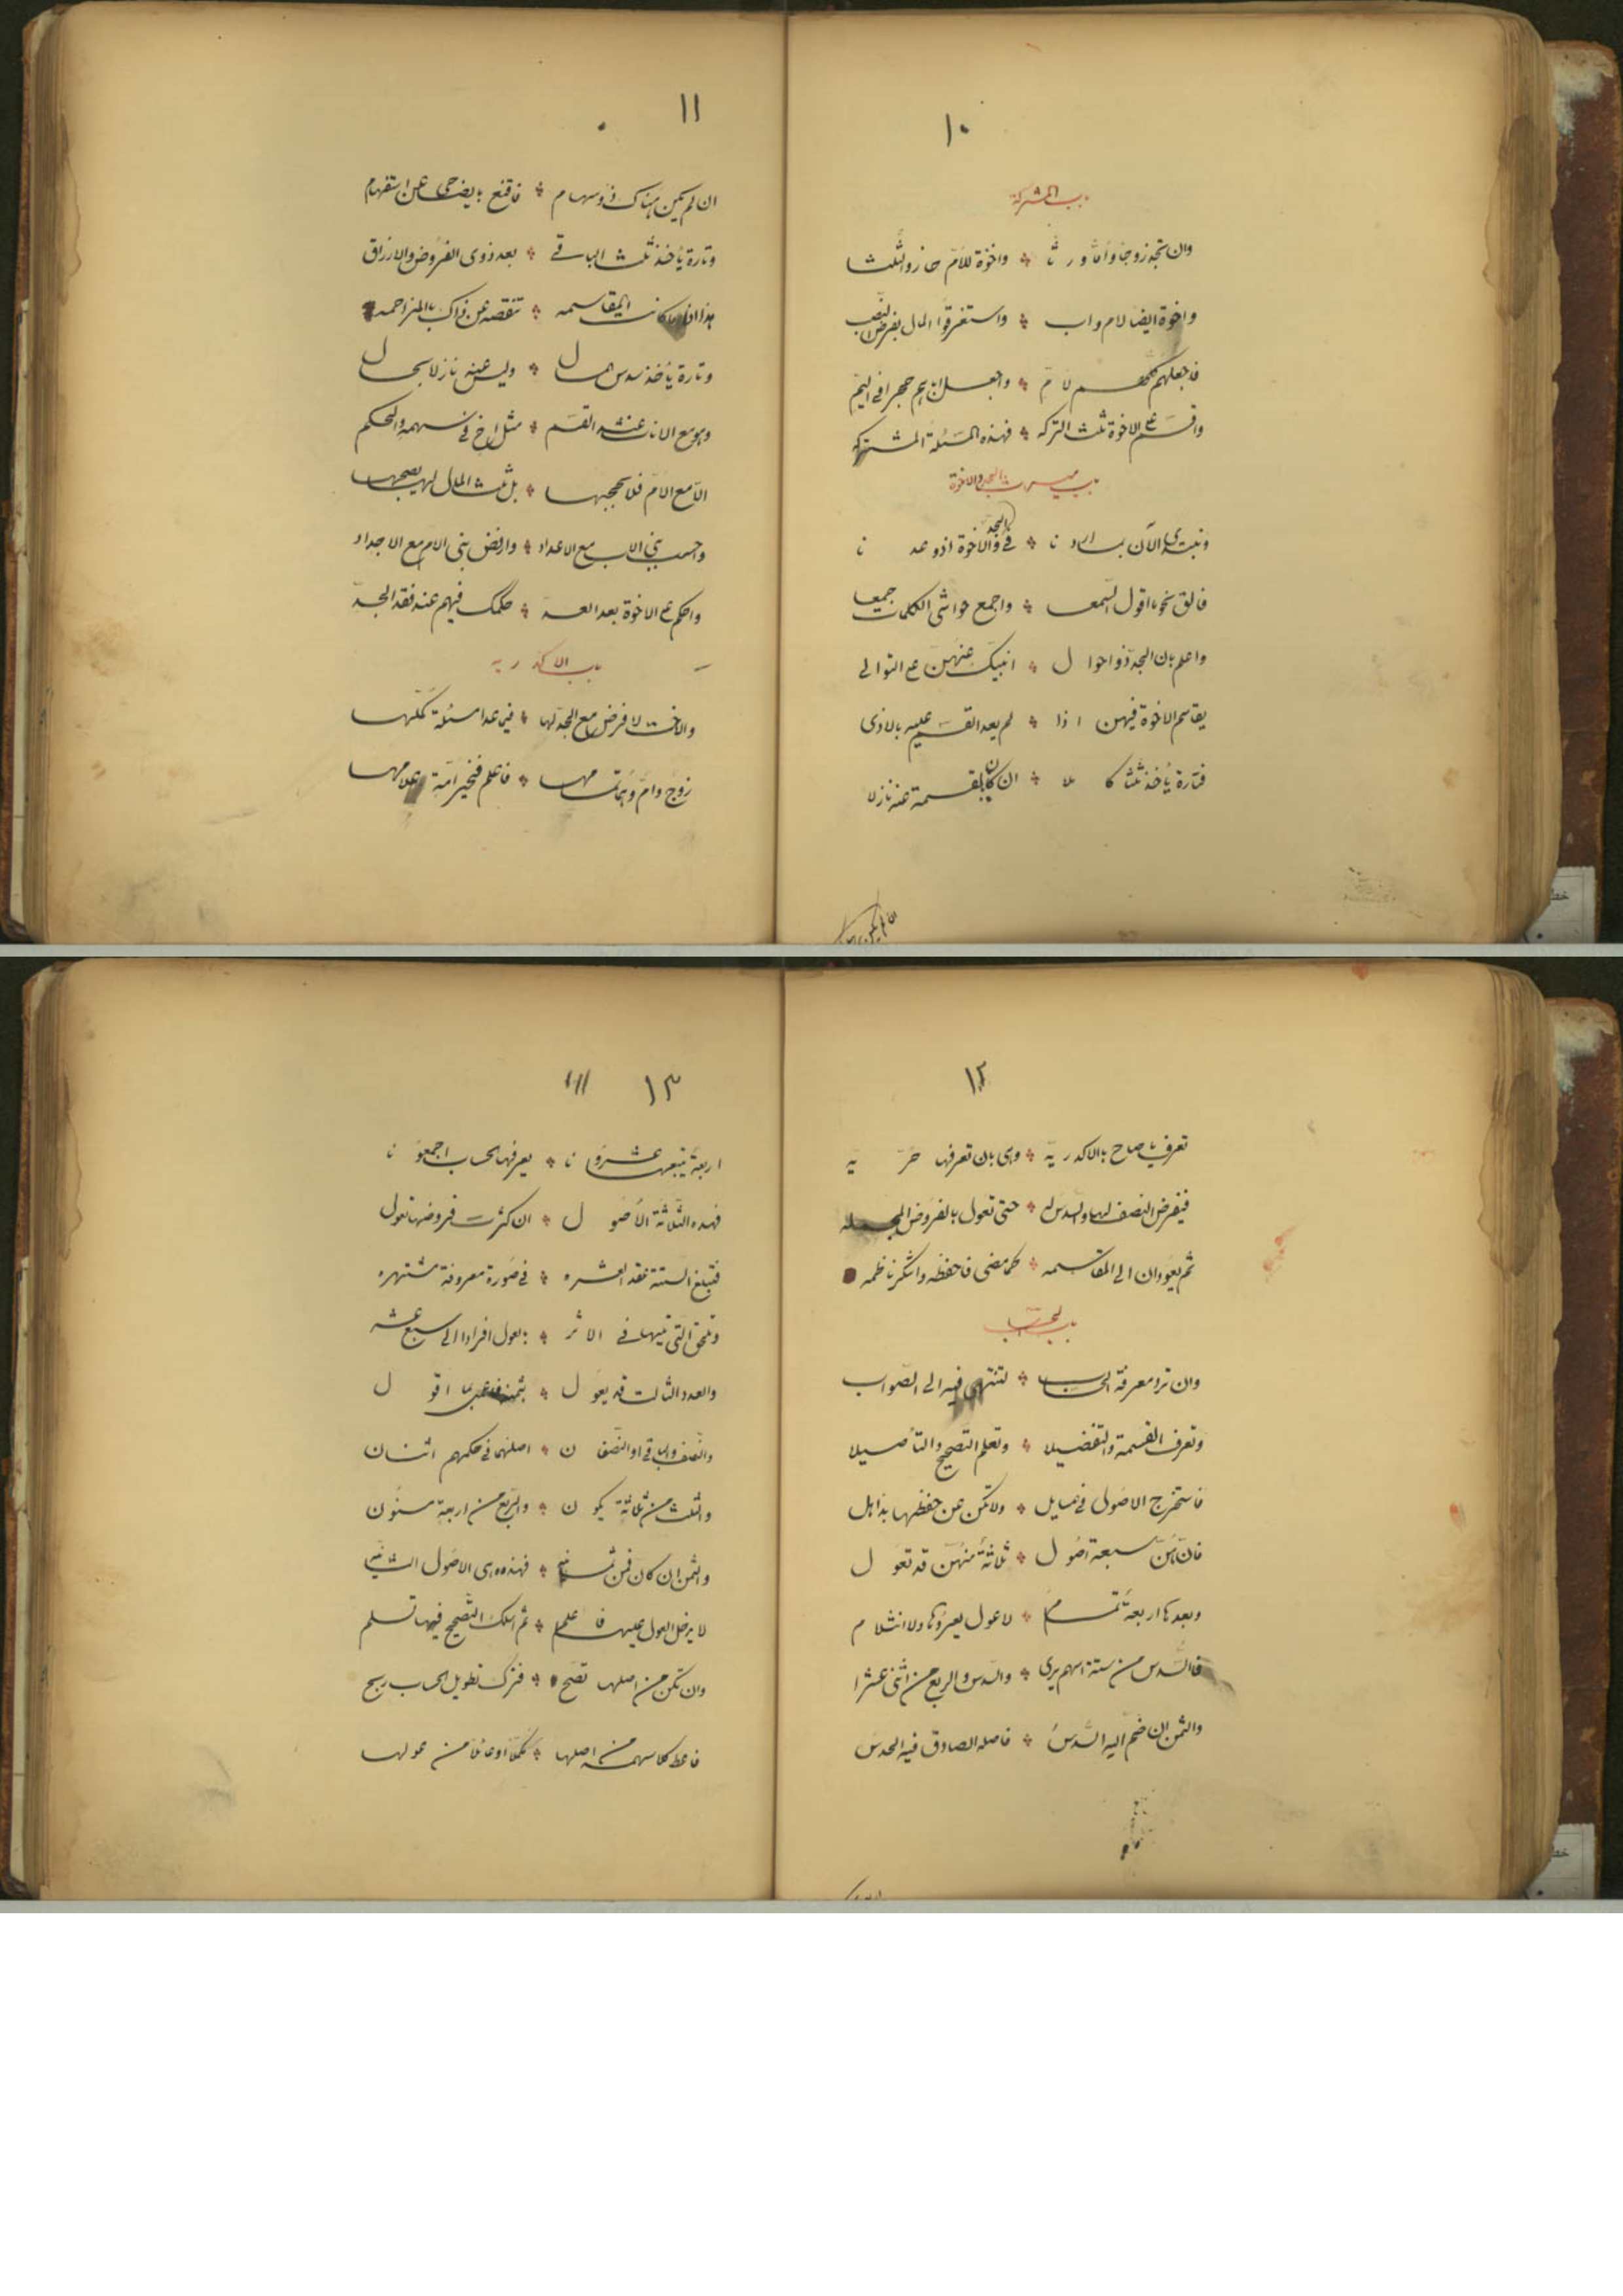 ١٠
باب المشركة
وان تجد زوجا واما ورثا ∴ واخوة للام حازوا الثلثا
واخوة ايضا لام واب ∴ واستغرقوا المال بفرض النصب
فاجعلهم كلهم لام ∴ واجعل اباهم حجرا في اليم
واقسم على الاخوة ثلث التركه ∴ فهذه المسئلة المشتركه
باب ميراث الجد والاخوة
ونبتدى الآن بما اردنا ∴ في الجد والاخوة اذ وعدنا
فالق نحو ما اقول السمعا ∴ واجمع حواشى الكلمات جمعا
واعلم بان الجد ذو احوال ∴ انبيك عنهن على التوالى
يقاسم الاخوة فيهن اذا ∴ لم يعد القسم عليه بالاذى
فتارة يأخذ ثلثا كاملا ∴ ان كان بالقسمة عنه نازلا
ان لم يكن
١١
ان لم يكن هناك ذو سهام ∴ فاقنع بايضاحى عن استفهام
وتارة يأخذ ثلث الباقي ∴ بعد ذوى الفروض والارزاق
هذا اذا ما كانت المقاسمه ∴ تنقصه عن ذاك بالمزاحمه
وتارة يأخذ سدس المال ∴ وليس عنه نازلا بحال
وهو مع الاناث عند القسم ∴ مثل اخ في سهمه والحكم
الا مع الام فلا يحجبها ∴ بل ثلث المال لها يصحبها
واحسب بني الاب مع الاعداد ∴ وارفض بنى الام مع الاجداد
واحكم على الاخوة بعد العد ∴ حكمك فيهم عند فقد الجد
باب الاكدريه
والاخت لا فرض مع الجد لها ∴ فيما عدا مسئلة كملها
زوج وام وهما تمامها ∴ فاعلم فخير امة علامها
١٢
تعرف يا صاح بالاكدريه ∴ وهى بان تعرفها حريه
فيفرض النصف لها والسدس له ∴ حتى تعول بالفروض المجمله
ثم يعودان الى المقاسمه ∴ كما مضى فاحفظه واشكر ناظمه
باب الحساب
وان ترد معرفة الحساب ∴ لتنتهى فيه الى الصواب
وتعرف القسمة والتفصيلا ∴ وتعلم التصحيح والتأصيلا
فاستخرج الاصول في المسايل ∴ ولا تكن عن حفظها بذاهل
فانهن سبعة اصول ∴ ثلاثة منهن قد تعول
وبعدها اربعة تمام ∴ لا عول يعروها ولا انثلام
فالسدس من ستة اسهم يرى ∴ والسدس والربع من اثنى عشرا
والثمن ان ضم اليه السدس ∴ فاصله الصادق فيه الحدس
١٣
اربعة يتبعها عشرونا ∴ يعرفها الحساب اجمعونا
فهذه الثلاثة الاصول ∴ ان كثرت فروضها تعول
فتبلغ الستة عقد العشره ∴ في صورة معروفة مشتهره
وتلحق التى تليها في الاثر ∴ بالعول افرادا الى سبع عشر
والعدد الثالث قد يعول ∴ بثمنه فاعمل بما اقول
والنصف والباقى او النصفان ∴ اصلهما في حكمهم اثنان
والثلث من ثلاثة يكون ∴ والربع من اربعة مسنون
والثمن ان كان فمن ثمانيه ∴ فهذه هى الاصول الثانيه
لا يدخل العول عليها فاعلم ∴ ثم اسلك التصحيح فيها تسلم
وان تكن من اصلها تصح ∴ فترك تطويل الحساب ربح
فاعط كلا سهمه من اصلها ∴ مكملا او عائلا من عولها